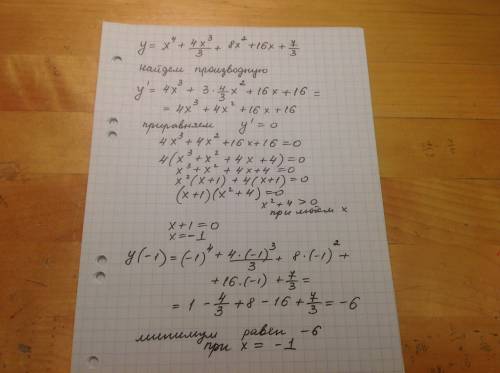 y = x⁴ + 4x³/3 + 8x² + 16x + 7/3
найдем производную
y' = 4x³ + 3·4/3 x² + 16x + 16 =
= 4x³ + 4x² + 16x + 16
приравняем y' = 0
4x³ + 4x² + 16x + 16 = 0
4(x³ + x² + 4x + 4) = 0
x³ + x² + 4x + 4 = 0
x²(x+1) + 4(x+1) = 0
(x+1)(x²+4) = 0
x² + 4 > 0
при любом x
x + 1 = 0
x = -1
y(-1) = (-1)⁴ + 4·(-1)³/3 + 8·(-1)² +
+ 16·(-1) + 7/3 =
= 1 - 4/3 + 8 - 16 + 7/3 = -6
минимум равен -6
при x = -1